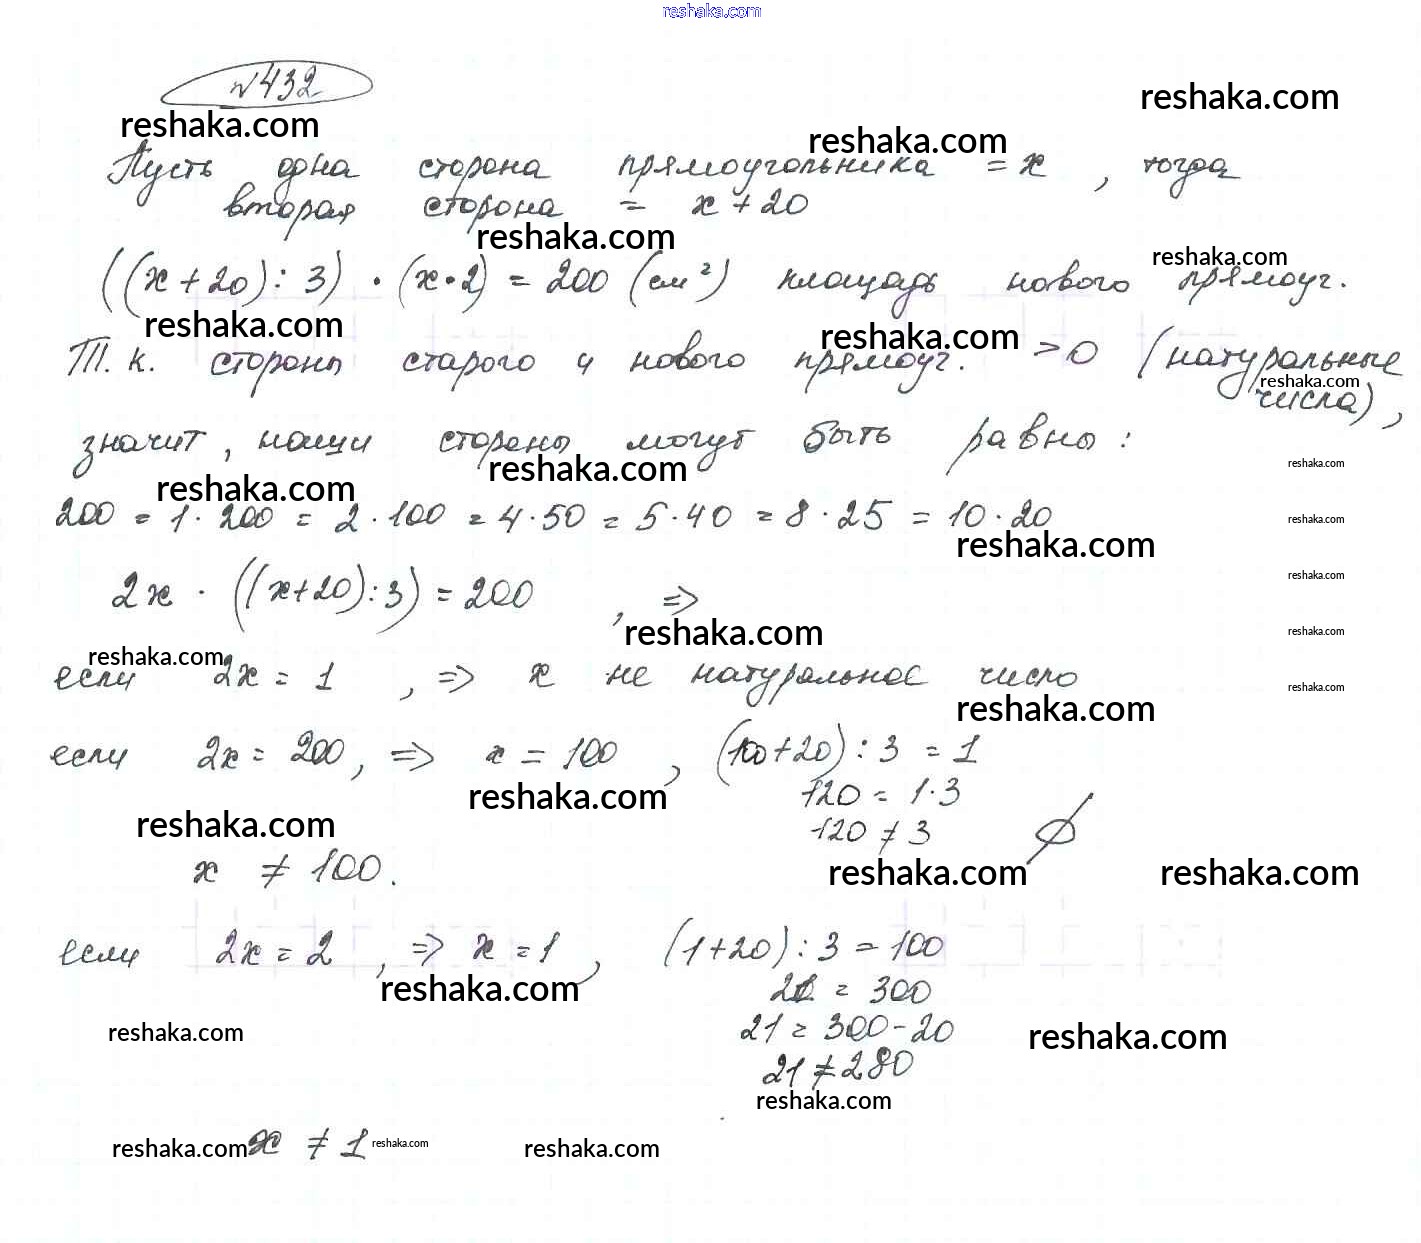 reshaka.com
№432
reshaka.com
reshaka.com
reshaka.com
Пусть одна сторона прямоугольника = x , тогда
вторая сторона = x + 20
reshaka.com
reshaka.com
((x + 20) : 3) · (x · 2) = 200 (см²) площадь нового прямоуг.
reshaka.com
reshaka.com
Т. к. стороны старого и нового прямоуг. > 0 (натуральные
reshaka.com
числа) ,
значит , наши стороны могут быть равны :
reshaka.com
reshaka.com
reshaka.com
200 = 1 · 200 = 2 · 100 = 4 · 50 = 5 · 40 = 8 · 25 = 10 · 20
reshaka.com
reshaka.com
reshaka.com
2x · ((x+20) : 3) = 200 , =>
reshaka.com
reshaka.com
reshaka.com
если 2x = 1 , => x не натуральное число
reshaka.com
reshaka.com
если 2x = 200 , => x = 100 , (100+20) : 3 = 1
reshaka.com
120 = 1 · 3
reshaka.com
120 ≠ 3 ∅
reshaka.com
reshaka.com
x ≠ 100 .
если 2x = 2 , => x = 1 , (1+20) : 3 = 100
reshaka.com
21 = 300
reshaka.com
21 = 300 - 20
reshaka.com
21 ≠ 280
reshaka.com
reshaka.com
x ≠ 1
reshaka.com
reshaka.com